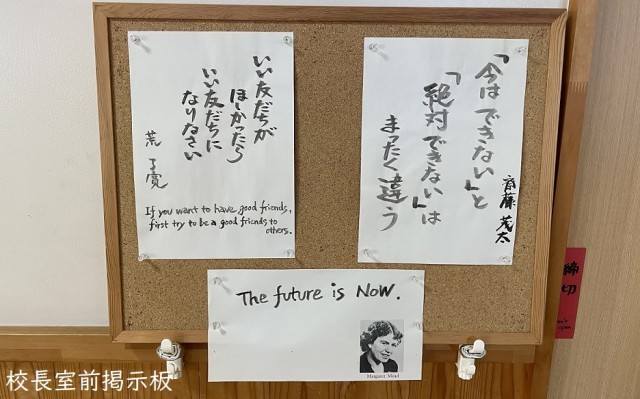 いい友だちが
ほしかったら
いい友だちに
なりなさい
荒 了寛
If you want to have good friends,
first try to be a good friends to
others.
「今はできない」と
「絶対できない」は
まったく違う
斎藤 茂太
The future is Now.
Margaret Mead
締切
校長室前掲示板